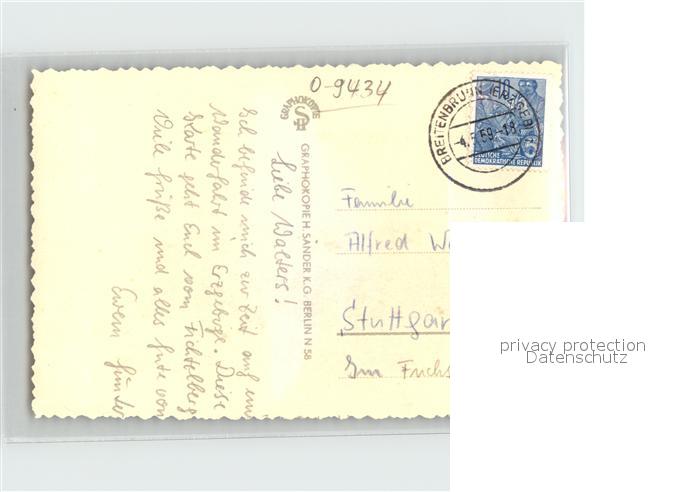 O-9434
GRAPHOKOPIE
GRAPHOKOPIE H. SANDER K.G. BERLIN N 58
Liebe Walters!
Ich befinde mich zur Zeit auf einer
Wanderfahrt im Erzgebirge. Diese
Karte geht Euch vom Fichtelberg
Viele Grüße und alles Gute von
Euern Günter
BREITENBRUNN (ERZGEB)
-4. 59-18
10
DEUTSCHE
DEMOKRATISCHE REPUBLIK
Familie
Alfred W
Stuttgar
Im Fuchs
privacy protection
Datenschutz